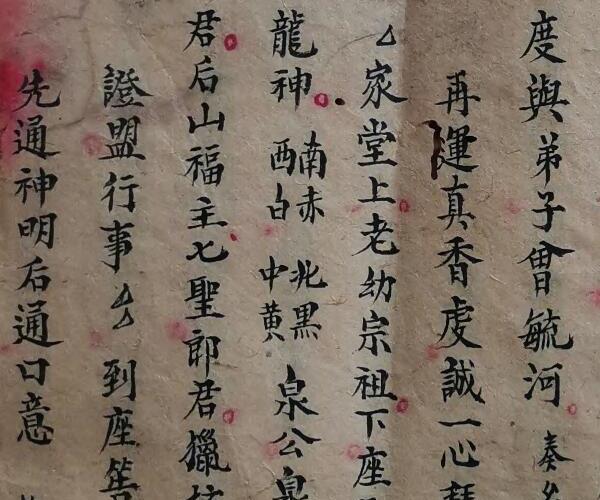 度與弟子曾毓河 奏
再運真香虔誠一心
家堂上老幼宗祖下座
龍神 南赤 西白 北黑 中黄 泉公
君后山福主七聖郎君獵
證盟行事 到座
先通神明后通口意